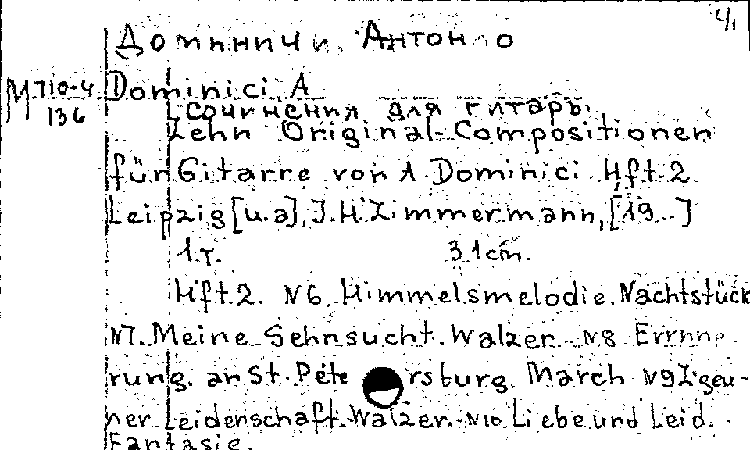 4,
Доминичи, Антонио
M710-4 Dominici, A
136 [Сочинения для гитары.
Zehn Original-Compositionen
für Gitarre von A Dominici Hft. 2
Leipzig [u.a], J. H. Zimmermann, [19..]
1 т. 31 cm.
Hft. 2. N6. Himmelsmelodie. Nachtstück
N7. Meine Sehnsucht. Walzer. N8 Erinne-
rung. an St. Petersburg. March N9 Zigeu-
ner Leidenschaft. Walzer. N10 Liebe und Leid.
Fantasie.